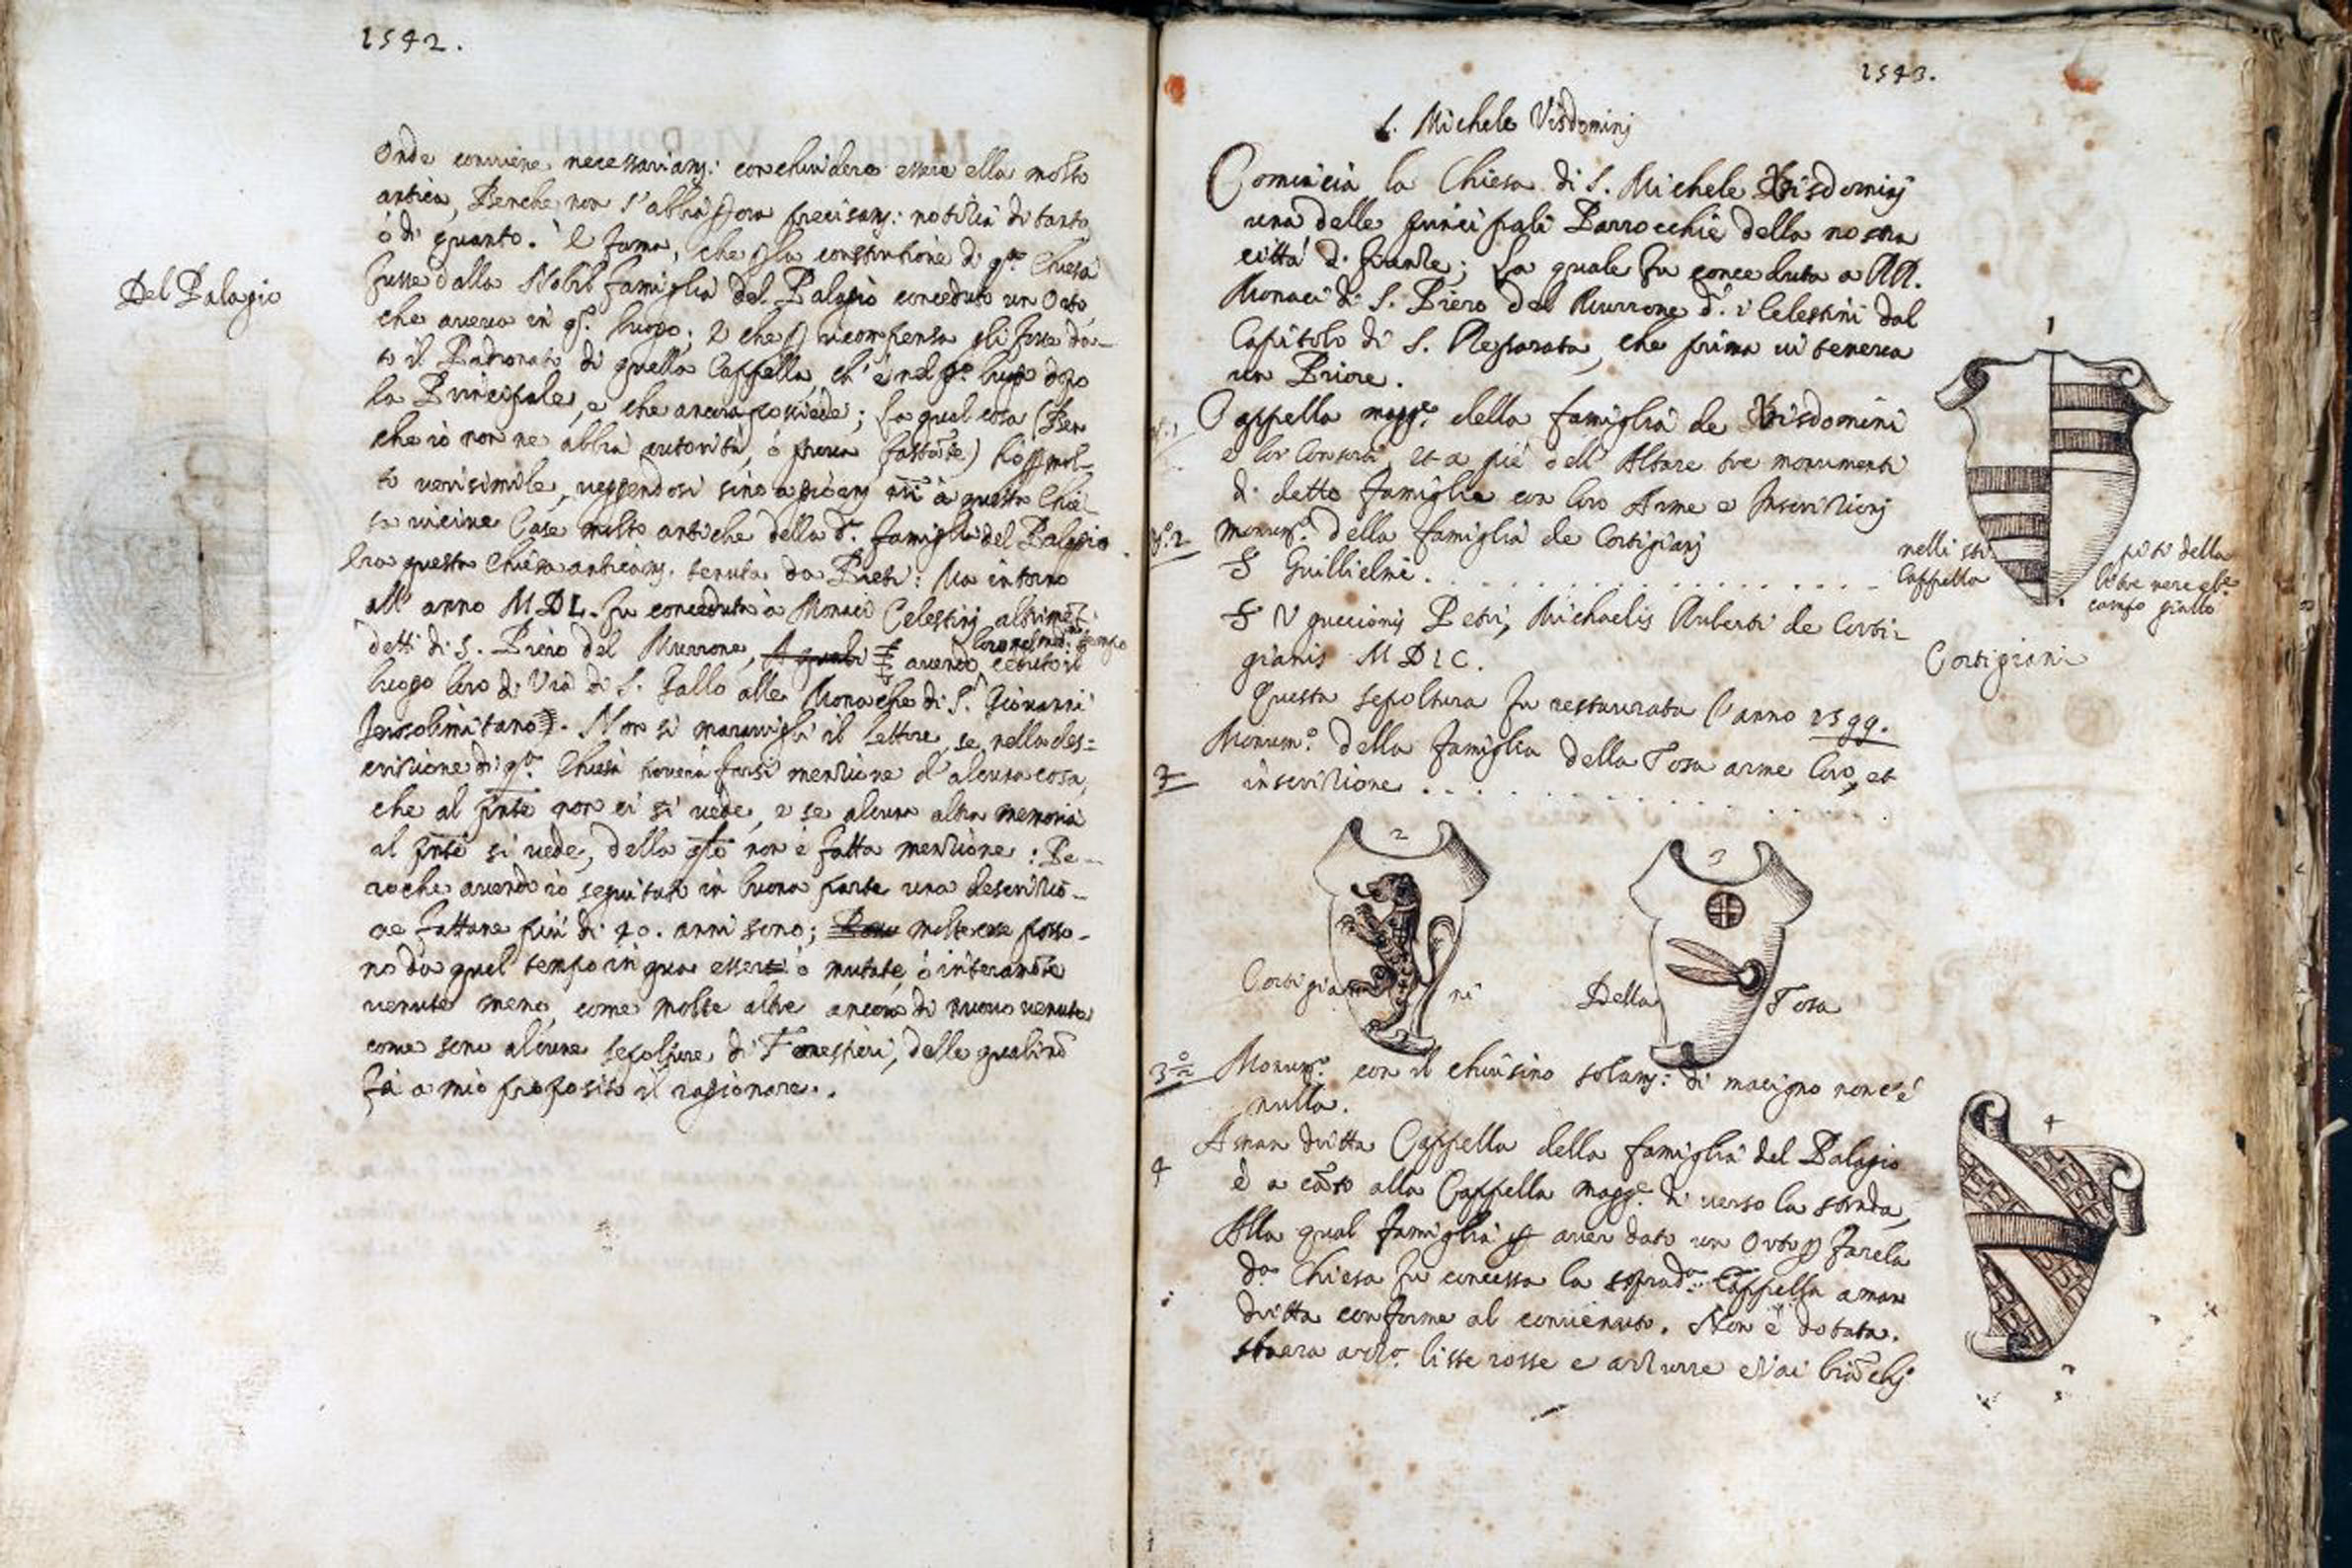 1542.
Onde conviene necessariamᵗ: conchiudere essere ella molto
antica, Benche non s'abbia ꝑora precisamᵗ: notitia di tanto
ò di quanto. È fama, che ꝑla construtione di qᵗᵃ Chiesa
fusse dalla Nobil famiglia del Palagio conceduto un Orto,
Del Palagio
che aveva in qᵗᵒ. luogo; e che ꝑ ricompensa gli fusse da-
to il Padronato di quella Cappella, ch'è nel luogo dopo
la Principale, e che ancora possiede; La qual cosa (Ben
che io non ne abbia autorità, ò prova) hò ꝑ mol-
to verisimile, veggendosi sino a à questa Chie-
sa vicine Case molto antiche della dᵃ. famiglia del Palagio
Era questa Chiesa anticamᵗ. tenuta da Preti: Ma intorno
all'anno MDL. fu conceduta a Monaci Celestinj altrimᵗⁱ
detti di S. Piero del Murrone, avendo ceduto il
loro nel medᵒ: tempo
luogo loro di Via di S. Gallo alle Monache di S. Giovanni
Jerosolimitano. Non si maravigli il Lettore, se nella des=
critione di qᵗᵃ. Chiesa troverà farsi mentione d'alcuna cosa,
che al pñte non ci si vede, e se alcuna altra memoria
al pñte si vede, della qle non è fatta mentione: Pe-
roche avendo io seguitato in buona parte una descritio-
ne fattane più di 40. anni sono; molte cose posso-
no da quel tempo in qua essere ò mutate, ò interamᵗᵉ
venute meno, come molte altre ancora di nuovo venute
come sono alcune sepolture di Forestieri, delle quali nõ
fà a mio proposito il ragionare.
1543.
S. Michele Visdominj
Comincia la Chiesa di S. Michele Visdominj
una delle principali Parrocchie della nostra
città di Firenze; La quale fu conceduta a RR.
Monaci di S. Piero del Murrone dᵗⁱ. i Celestini dal
Capitolo di S. Reparata, che prima vi teneva
un Priore.
1
Cappella maggᵉ. della famiglia de Visdomini
e lor Consorti, et a piè dell'Altare tre monumenti
di detta famiglia con loro Arme e Inscritionj
nº. 2 Monumᵒ. della famiglia de Cortigianj
nelli
Cappella
della
campo giallo
S Guillielmi . . . . . . . . . . . . . .
S Vguccionis Petri, Michaelis Ruberti de Corti-
gianis MDIC.
Cortigiani
Questa sepoltura fu restaurata l'anno 1599.
Monumᵒ. della famiglia della Tosa arme loro, et
3 inscritione . . . . . . . . . . . .
2
3
Cortigia ni
Della Tosa
3º Monumᵒ. con il chiusino solamᵗ: di macigno non c'è
nulla.
4
A man dritta Cappella della famiglia del Palagio
4 è a cãto alla Cappella maggᵉ. di verso la strada,
Alla qual famiglia ꝑ aver dato un Orto ꝑ fare la
dᵃ Chiesa fu concessa la sopradᵃ. Cappella a man
dritta conforme al convenuto. Non è dotata.
liste rosse e azzurre e Vai biãchj